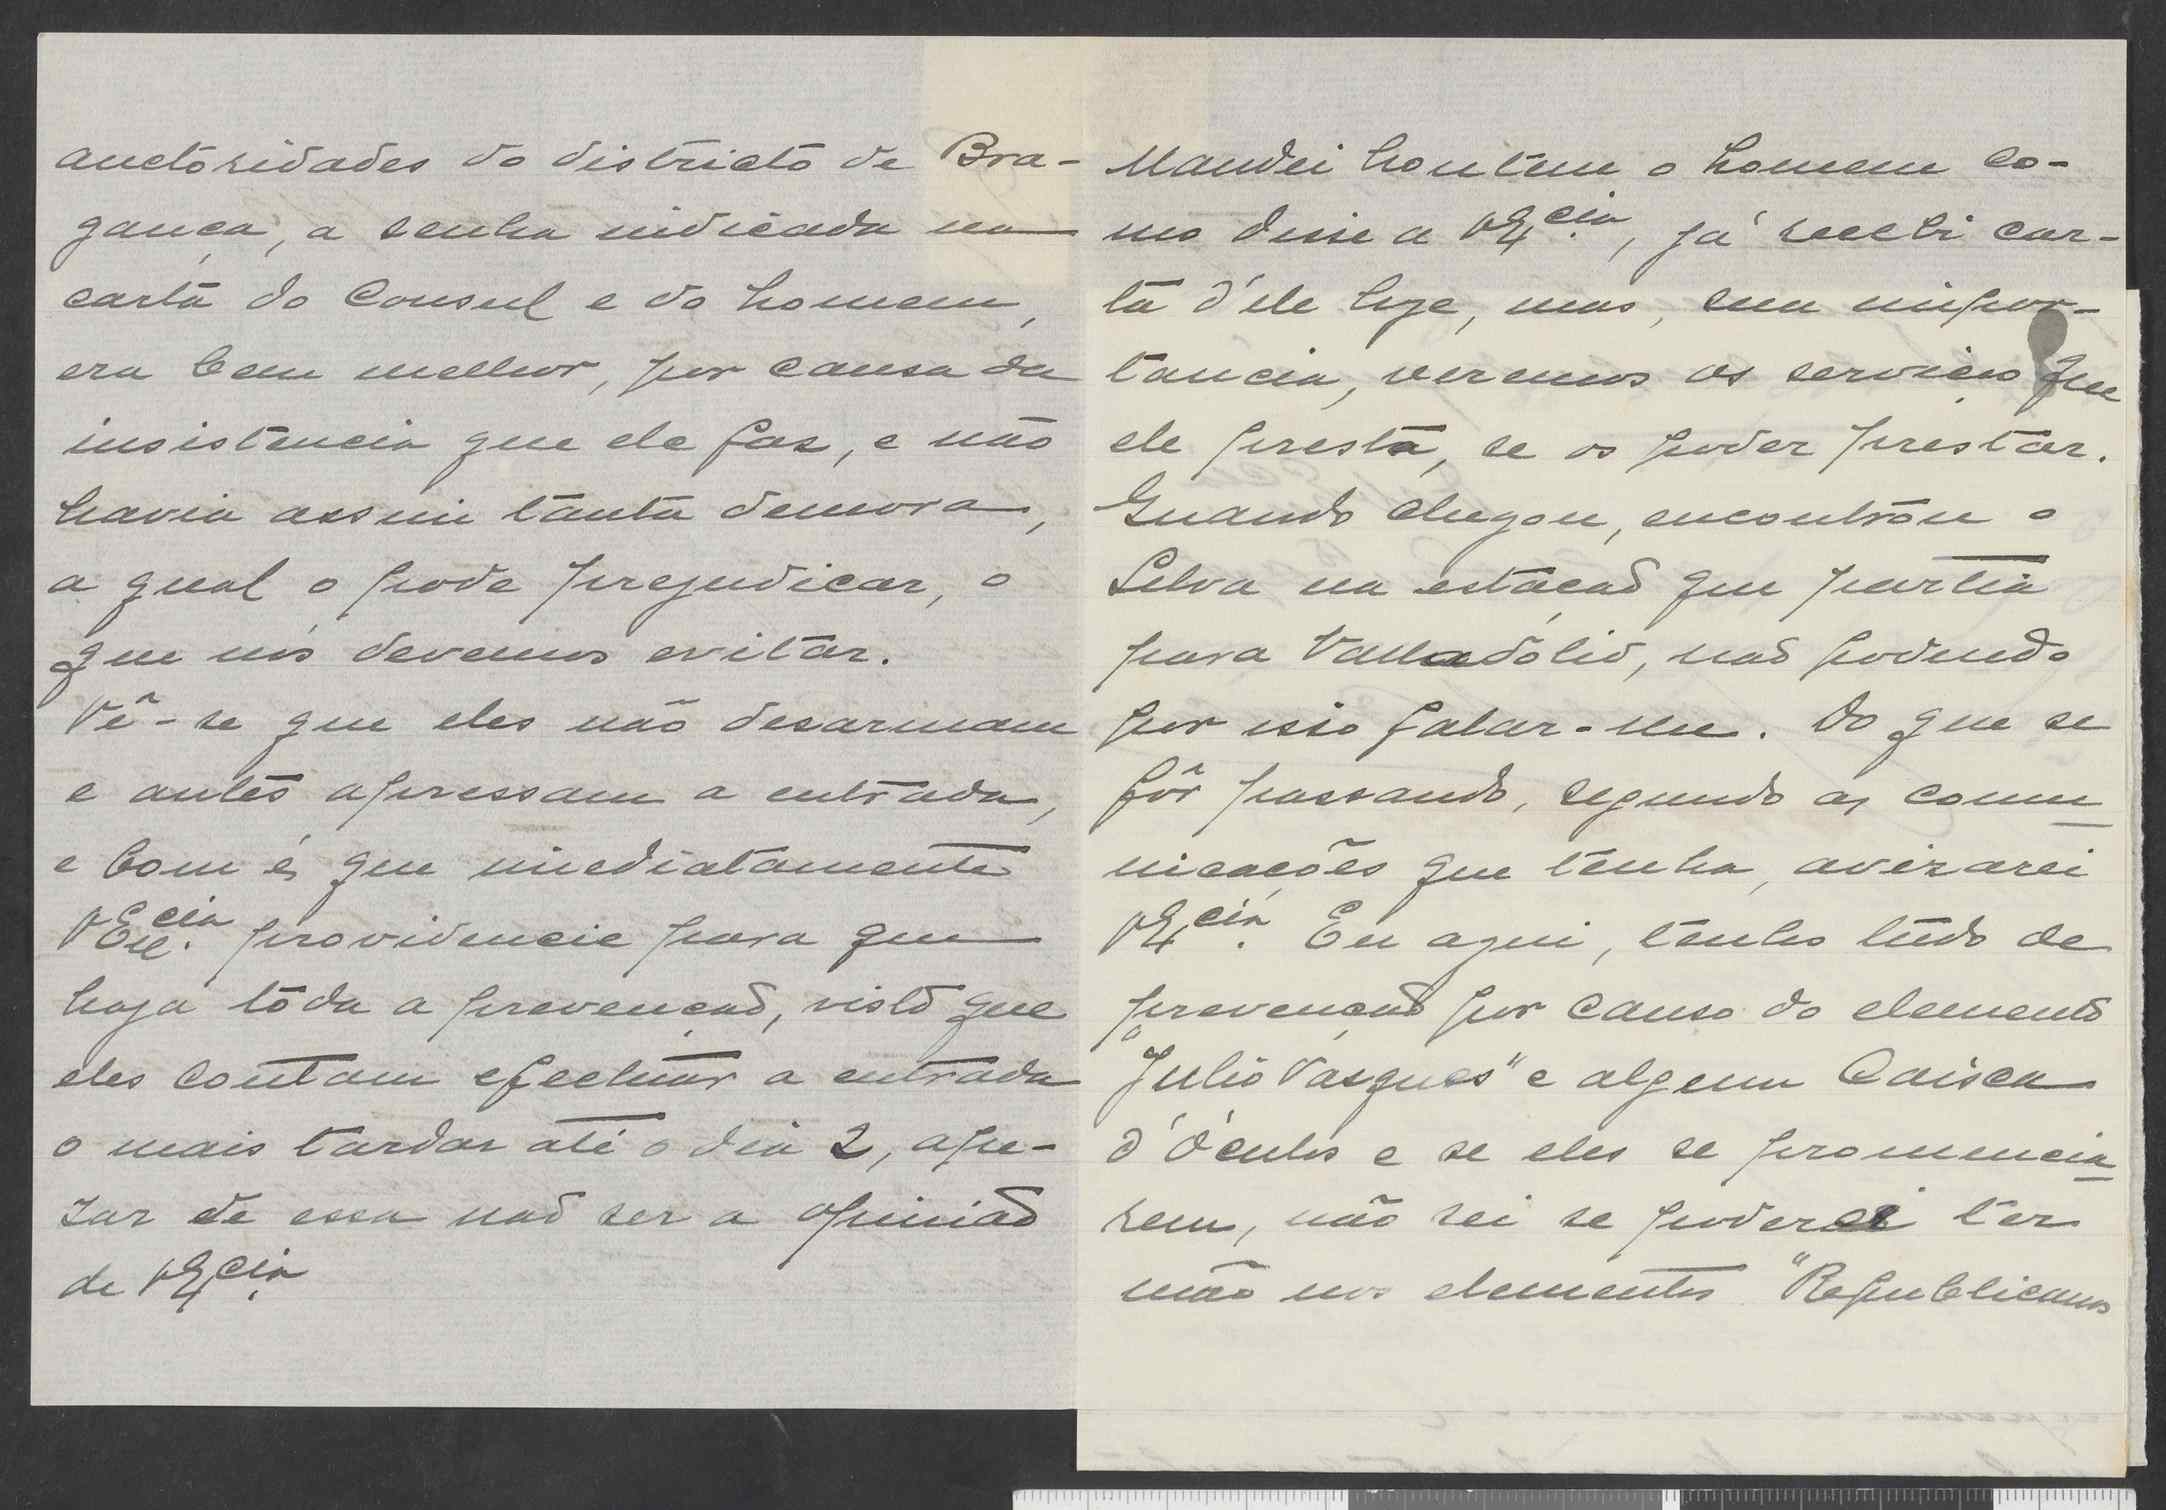 auctoridades do districto de Bra-
gança, a senha indicada na
carta do Consul e do homem,
era bem melhor, por causa da
insistencia que ele faz, e não
havia assim tanta demora,
a qual o pode prejudicar, o
que nós devemos evitar.
Vê-se que eles não desarmam
e antes apressam a entrada,
e bom é, que imediatamente
V Exc.cia providencie para que
haja tôda a prevenção, visto que
eles contam efectuar a entrada
o mais tardar até o dia 2, ape-
zar de essa não ser a opinião
de V Ex.cia
Mandei hontem o homem co-
mo disse a V Ex.cia, já recebi car-
ta d'ele hoje, mas, sem impor-
tancia, veremos os serviços que
ele presta, se os poder prestar.
Quando chegou, encontrou o
Selva na estação que partia
para Valladolid, não podendo
por isso falar-lhe. Do que se
fôr passando, segundo as commu
nicações que tenha, avizarei
V Ex.cia. Eu aqui, tenho tudo de
prevenção por causa do elemento
"Julio Vasques" e algum Caisca
d'Óculos e se eles se pronuncia
rem, não sei se poderei ter
mão nos elementos "Republicanos